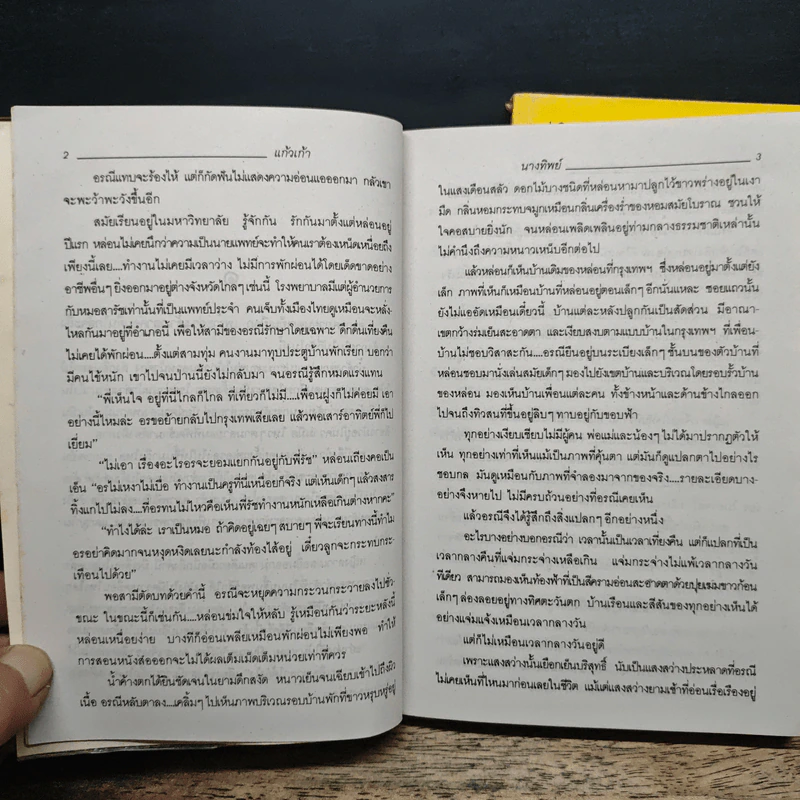 2 แก้วเก้า
อรณีแทบจะร้องไห้ แต่ก็กัดฟันไม่แสดงความอ่อนแอออกมา กลัวเขา
จะพะว้าพะวังขึ้นอีก
สมัยเรียนอยู่ในมหาวิทยาลัย รู้จักกัน รักกันมาตั้งแต่หล่อนอยู่
ปีแรก หล่อนไม่เคยนึกว่าความเป็นนายแพทย์จะทำให้คนเราต้องเหน็ดเหนื่อยถึง
เพียงนี้เลย....ทำงานไม่เคยมีเวลาว่าง ไม่มีการพักผ่อนได้โดยเด็ดขาดอย่าง
อาชีพอื่นๆ ยิ่งออกมาอยู่ต่างจังหวัดไกลๆ เช่นนี้ โรงพยาบาลมีแต่ผู้อำนวยการ
กับหมอสารัชเท่านั้นที่เป็นแพทย์ประจำ คนเจ็บทั้งเมืองไทยดูเหมือนจะหลั่ง-
ไหลกันมาอยู่ที่อำเภอนี้ เพื่อให้สามีของอรณีรักษาโดยเฉพาะ ดึกดื่นเที่ยงคืน
ไม่เคยได้พักผ่อน....ตั้งแต่สามทุ่ม คนงานมาทุบประตูบ้านพักเรียก บอกว่า
มีคนไข้หนัก เขาไปจนป่านนี้ยังไม่กลับมา จนอรณีรู้สึกหมดแรงแทน
“พี่เห็นใจ อยู่ที่นี่ไกลก็ไกล ที่เที่ยวก็ไม่มี....เพื่อนฝูงก็ไม่ค่อยมี เอา
อย่างนี้ไหมล่ะ อรขอย้ายกลับไปกรุงเทพเสียเลย แล้วพอเสาร์อาทิตย์พี่ก็ไป
เยี่ยม”
“ไม่เอา เรื่องอะไรอรจะยอมแยกกันอยู่กับพี่รัช” หล่อนเถียงคอเป็น
เอ็น “อรไม่เหงาไม่เบื่อ ทำงานเป็นครูที่นี่เหนื่อยก็จริง แต่เห็นเด็กๆ แล้วสงสาร
ทิ้งแกไปไม่ลง....ที่อรทนไม่ไหวคือเห็นพี่รัชทำงานหนักเหลือเกินต่างหากคะ”
“ทำไงได้ล่ะ เราเป็นหมอ ถ้าคิดอยู่เฉยๆ สบายๆ พี่จะเรียนทางนี้ทำไม
อรอย่าคิดมากจนหงุดหงิดเลยนะกำลังท้องไส้อยู่ เดี๋ยวลูกจะกระทบกระ-
เทือนไปด้วย”
พอสามีตัดบทด้วยคำนี้ อรณีจะหยุดความกระวนกระวายลงไปชั่ว-
ขณะ ในขณะนี้ก็เช่นกัน....หล่อนข่มใจให้หลับ รู้เหมือนกันว่าระยะหลังนี้
หล่อนเหนื่อยง่าย บางทีก็อ่อนเพลียเหมือนพักผ่อนไม่เพียงพอ ทำให้
การสอนหนังสือออกจะไม่ได้ผลเต็มเม็ดเต็มหน่วยเท่าที่ควร
น้ำค้างตกได้ยินชัดเจนในยามดึกสงัด หนาวเย็นจนเฉียบเข้าไปถึงผิว
เนื้อ อรณีหลับตาลง...เคลิ้มๆ ไปเห็นภาพบริเวณรอบบ้านพักที่ขาวหรุบหรู่อยู่
นางทิพย์ 3
ในแสงเดือนสลัว ดอกไม้บางชนิดที่หล่อนหามาปลูกไว้ขาวพร่างอยู่ในเงา
มืด กลิ่นหอมกระทบจมูกเหมือนกลิ่นเครื่องร่ำของหอมสมัยโบราณ ชวนให้
ใจคอสบายยิ่งนัก จนหล่อนเพลิดเพลินอยู่ท่ามกลางธรรมชาติเหล่านั้น
ไม่คำนึงถึงความหนาวเหน็บอีกต่อไป
แล้วหล่อนก็เห็นบ้านเดิมของหล่อนที่กรุงเทพฯ ซึ่งหล่อนอยู่มาตั้งแต่ยัง
เล็ก ภาพที่เห็นก็เหมือนบ้านที่หล่อนอยู่ตอนเล็กๆ อีกนั่นแหละ ซอยแถวนั้น
ยังไม่แออัดเหมือนเดี๋ยวนี้ บ้านแต่ละหลังปลูกกันเป็นสัดส่วน มีอาณา-
เขตกว้างร่มเย็นสะอาดตา และเงียบสงบตามแบบบ้านในกรุงเทพฯ ที่เพื่อน-
บ้านไม่ชอบวิสาสะกัน....อรณียืนอยู่บนระเบียงเล็กๆ ชั้นบนของตัวบ้านที่
หล่อนชอบมานั่งเล่นสมัยเด็กๆ มองไปยังเขตบ้านและบริเวณโดยรอบรั้วบ้าน
ของหล่อน มองเห็นบ้านเพื่อนแต่ละคน ทั้งข้างหน้าและด้านข้างไกลออก
ไปจนถึงทิวสนที่ขึ้นอยู่ลิบๆ ทาบอยู่กับขอบฟ้า
ทุกอย่างเงียบเชียบไม่มีผู้คน พ่อแม่และน้องๆ ไม่ได้มาปรากฏตัวให้
เห็น ทุกอย่างเท่าที่เห็นแม้เป็นภาพที่คุ้นตา แต่มันก็ดูแปลกตาไปอย่างไร
ชอบกล มันดูเหมือนกับภาพที่จำลองมาจากของจริง....รายละเอียดบาง-
อย่างจึงหายไป ไม่มีครบถ้วนอย่างที่อรณีเคยเห็น
แล้วอรณีจึงได้รู้สึกถึงสิ่งแปลกๆ อีกอย่างหนึ่ง
อะไรบางอย่างบอกอรณีว่า เวลานั้นเป็นเวลาเที่ยงคืน แต่ก็แปลกที่เป็น
เวลากลางคืนที่แจ่มกระจ่างเหลือเกิน แจ่มกระจ่างไม่แพ้เวลากลางวัน
ทีเดียว สามารถมองเห็นท้องฟ้าที่เป็นสีครามอ่อนสะอาดตาด้วยปุยเมฆขาวก้อน
เล็กๆ ล่องลอยอยู่ทางทิศตะวันตก บ้านเรือนและสีสันของทุกอย่างเห็นได้
อย่างแจ่มแจ้งเหมือนเวลากลางวัน
แต่ก็ไม่เหมือนเวลากลางวันอยู่ดี
เพราะแสงสว่างนั้นเยือกเย็นบริสุทธิ์ นับเป็นแสงสว่างประหลาดที่อรณี
ไม่เคยเห็นที่ไหนมาก่อนเลยในชีวิต แม้แต่แสงสว่างยามเช้าที่อ่อนเรื่อเรืองอยู่